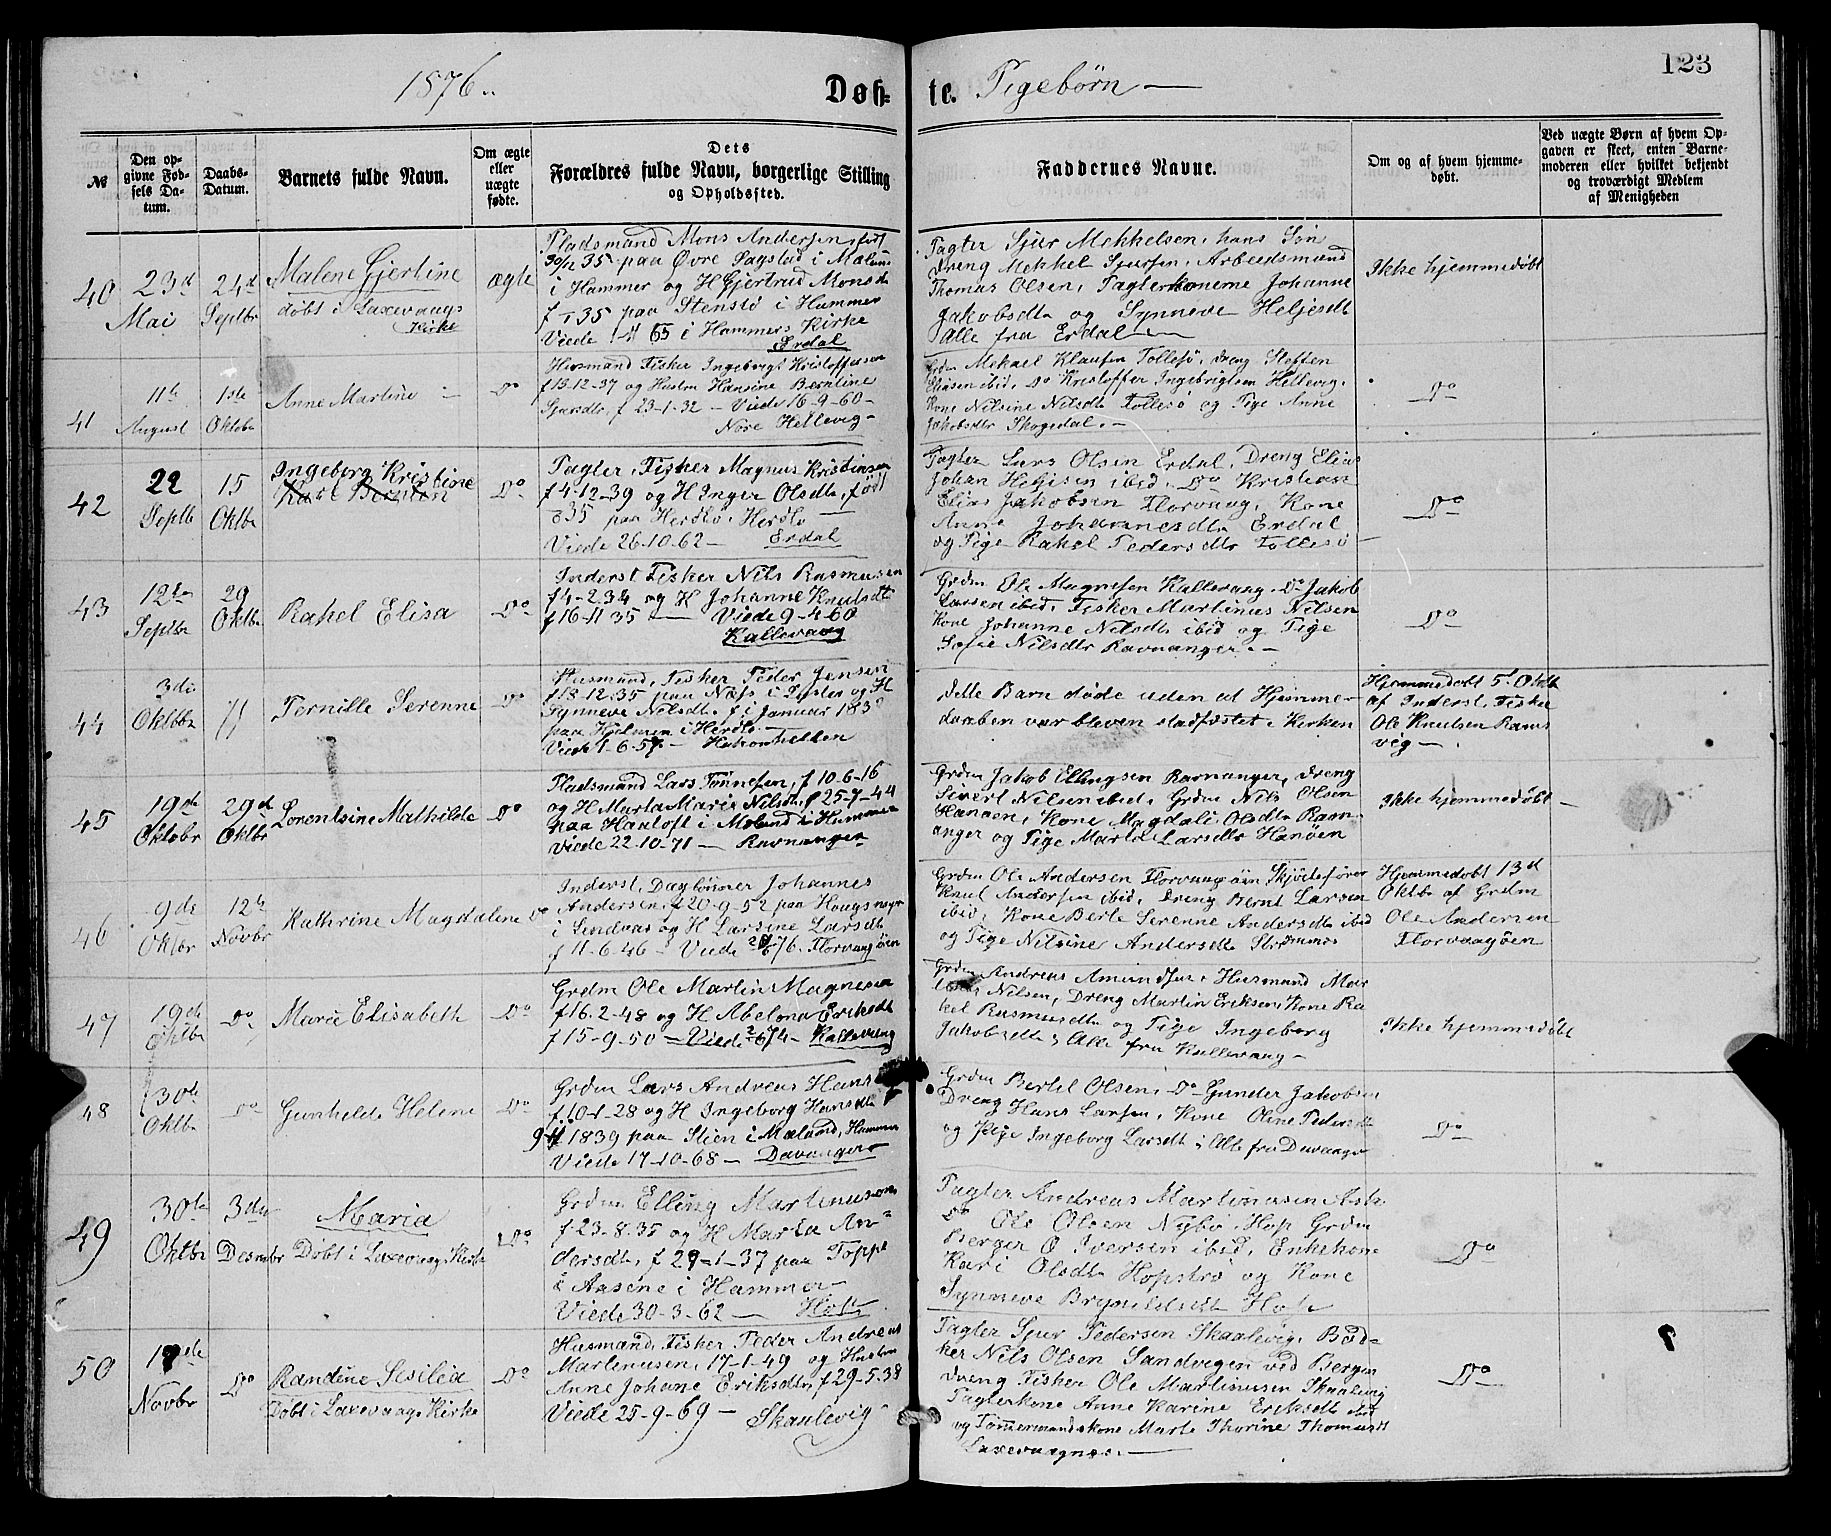 1876.
Døb=
te. Pigebörn —
123
№
Den op-
givne Fød-
sels Da-
tum.
Daabs-
Datum.
Barnets fulde Navn.
Om ægte
eller
uægte
fødte.
Dets
Forældres fulde Navn, borgerlige Stilling
og Opholdssted.
Faddernes Navne.
Om og af hvem hjemme-
døbt.
Ved uægte Børn af hvem Op-
gaven er skeet, enten Barne-
moderen eller hvilket bekjendt
og troværdigt Medlem
af Menigheden
40
23d
Mai
24d
Septbr
Malene Gjertine
döbt i Laxevaags
Kirke
ægte
Pladsmand Mons Andersen, født
30/12 35 paa Övre Sagstad i
i Hammer og H Gjertrud Monsdt
f - 35 paa Stenstö i Hammer
Viede 65 i Hammers Kirke
Erdal
Pagter Sjur Mekkelsen, hans Sön
Dreng Mekkel Sjursen, Arbeidsmand
Thomas Olsen, Pagterkonerne Johanne
Jakobsdtr og Synneve Heljesdt
Alle fra Erdal —
Ikke hjemmedøbt
41
11te
August
1ste
Oktbr
Anne Martine —
Do
Husmand Fisker Ingebrigt Kristoffersen
f 13-12-37 og Hustru Hansine Berntine
Sjursdtr, f 23-1-32 — Viede 16-9-60 —
Nore Hellevig —
Grdm Mekael Klausen Follesö, Dreng Steffen
Eliasen ibid, Do Kristoffer Ingebrigtsen Hellevig,
Kone Nilsine Nilsdtr Follesö og Pige Anne
Jakobsdtr Skogedal. —
Do
42
22
Septb
15
Oktbr
Ingeborg Kristine
Do
Pagter, Fisker Magnus Kristinsen
f 4-12-39 og H Inger Olsdtr, född
35 paa Herdlö, Herdlö
Viede 26-10-62 — Erdal
Pagter Lars Olsen Erdal, Dreng Elias
Johan Heljesen ibid, Do Kristian
Elias Jakobsen Florvaag, Kone
Anne Johannesdtr Erdal
og Pige Rakel Pedersdtr Follesö —
Do
43
12te
Septbr
29
Oktbr
Rakel Elisa
Do
Inderst Fisker Nils Rasmusen
f 4-2-34 og H Johanne Knutsdt
f 16-11 35 — Viede 9-4-60
Kallevaag
Grdm Ole Magnesen Kallevaag, Do Jakob
Larsen ibid, Fisker Martinus Nilsen
Kone Johanne Nilsdtr ibid og Pige
Sofie Nilsdtr Ravnanger. —
Do
44
3die
Oktbr
//
Pernille Serenne
Do
Husmand, Fisker Peder Jensen
f 13-12-35 paa Næss i Lyster og H
Synneve Nilsdt. f i Januar 183
paa Hjelmen i Herdlö —
Viede 1-6-57 — Hakonshellen
Dette Barn döde uden at Hjemme-
daaben var bleven stadfæstet i Kirken
Hjemmedöbt 5. Oktb
af Inderst, Fisker
Ole Knutsen Rams
vig — .
45
19de
Oktobr
29d
Oktbr
Lorentsine Mathilde
Do
Pladsmand Lars Tönnesen, f 10-6-16
og H Marta Marie Nilsdt, f 25-7-44
paa Haaloft i Meland i Hammer
Viede 22-10-71 — Ravnanger
Grdm Jakob Ellingsen Ravnanger, Dreng
Sivert Nilsen ibid, Grdm Nils Olsen
Hanöen, Kone Magdali Olsdtr Ravn-
anger og Pige Marta Larsdtr Hanöen
Ikke hjemmedöbt —
46
9de
Oktbr
12te
Novbr
Kathrine Magdalene
Do
Inderst, Daglönner Johannes
Andersen, f 20-9-52 paa Haugsmyr
i Sendvas og H Larsine Larsdt
f 11-6-46 — Viede 76. Florvaagöen
Grdm Ole Andersen Florvaagöen Skjödeförer
Knut Andersen ibid, Dreng Bernt Larsen
ibid, Kone Berte Serenne Andersdt ibid
og Pige Nilsine Andersdt Strömmes
Hjemmedöbt 13d
Oktbr af Grdm
Ole Andersen
Florvaagöen
47
19de
Oktbr
Do
Marie Elisabeth
Do
Grdm Ole Martin Magnesen
f 16-2-48 og H Abelona Eriksdt
f 15-9-50 — Viede 2/6 74 — Kallevaag
Grdm Andreas Amundsen, Husmand Mar
Nilsen, Dreng Martin Eriksen, Kone Ra
kel Rasmusdtr og Pige Ingeborg
Jakobsdtr, Alle fra Kallevaag —
Ikke hjemmedöbt
48
30te
Oktbr
Do
Gunhilde Helene
Do
Grdm Lars Andreas Hans
f 10-1-28 og H Ingeborg Hansdtr
9-11 1839 paa Stien i Mæland, Hammer
Viede 17-10-68 — Davanger
Grdm Bertel Olsen, Do Gunder Jakobsen
Dreng Hans Larsen, Kone Oline Pedersdt
og Pige Ingeborg Larsdt, Alle fra Davanger
Do
49
30te
Oktbr
3die
Desembr
Maria
Döbt i Laxevaags Kirke
Do
Grdm Elling Martinusen
f 23-8-35 og H Marta An-
dersdt, f 29-1-37 paa Toppe
i Aasene i Hammer —
Viede 30-3-62 — Hop
Pagter Andreas Martinusen Ask
Do Ole Olsen Nybö, Hop Grdm
Berger O Iversen ibid, Enkekone
Kari Olsdtr Hopströ og Kone
Synneve Brynildsdt Hop
Do
50
19de
Novbr
Do
Randine Sesilia
Döbt i Laxevaags Kirke
Do
Husmand, Fisker Peder Andreas
Martinusen, 17-1-49 og Hustru
Anne Johane Eriksdtr, f 29-5-38
Viede 25-9-69 — Skaalevig
Pagter Sjur Pedersen Skaalevig, Bød-
ker Nils Olsen Sandvigen ved Bergen
Dreng Fisker Ole Martinusen Skaalevig
Pagterkone Anne Karine Eriksdt ibid
og Tömmermandskone Marte Thorine Thomasdt
Laxevaagnes. —
Do